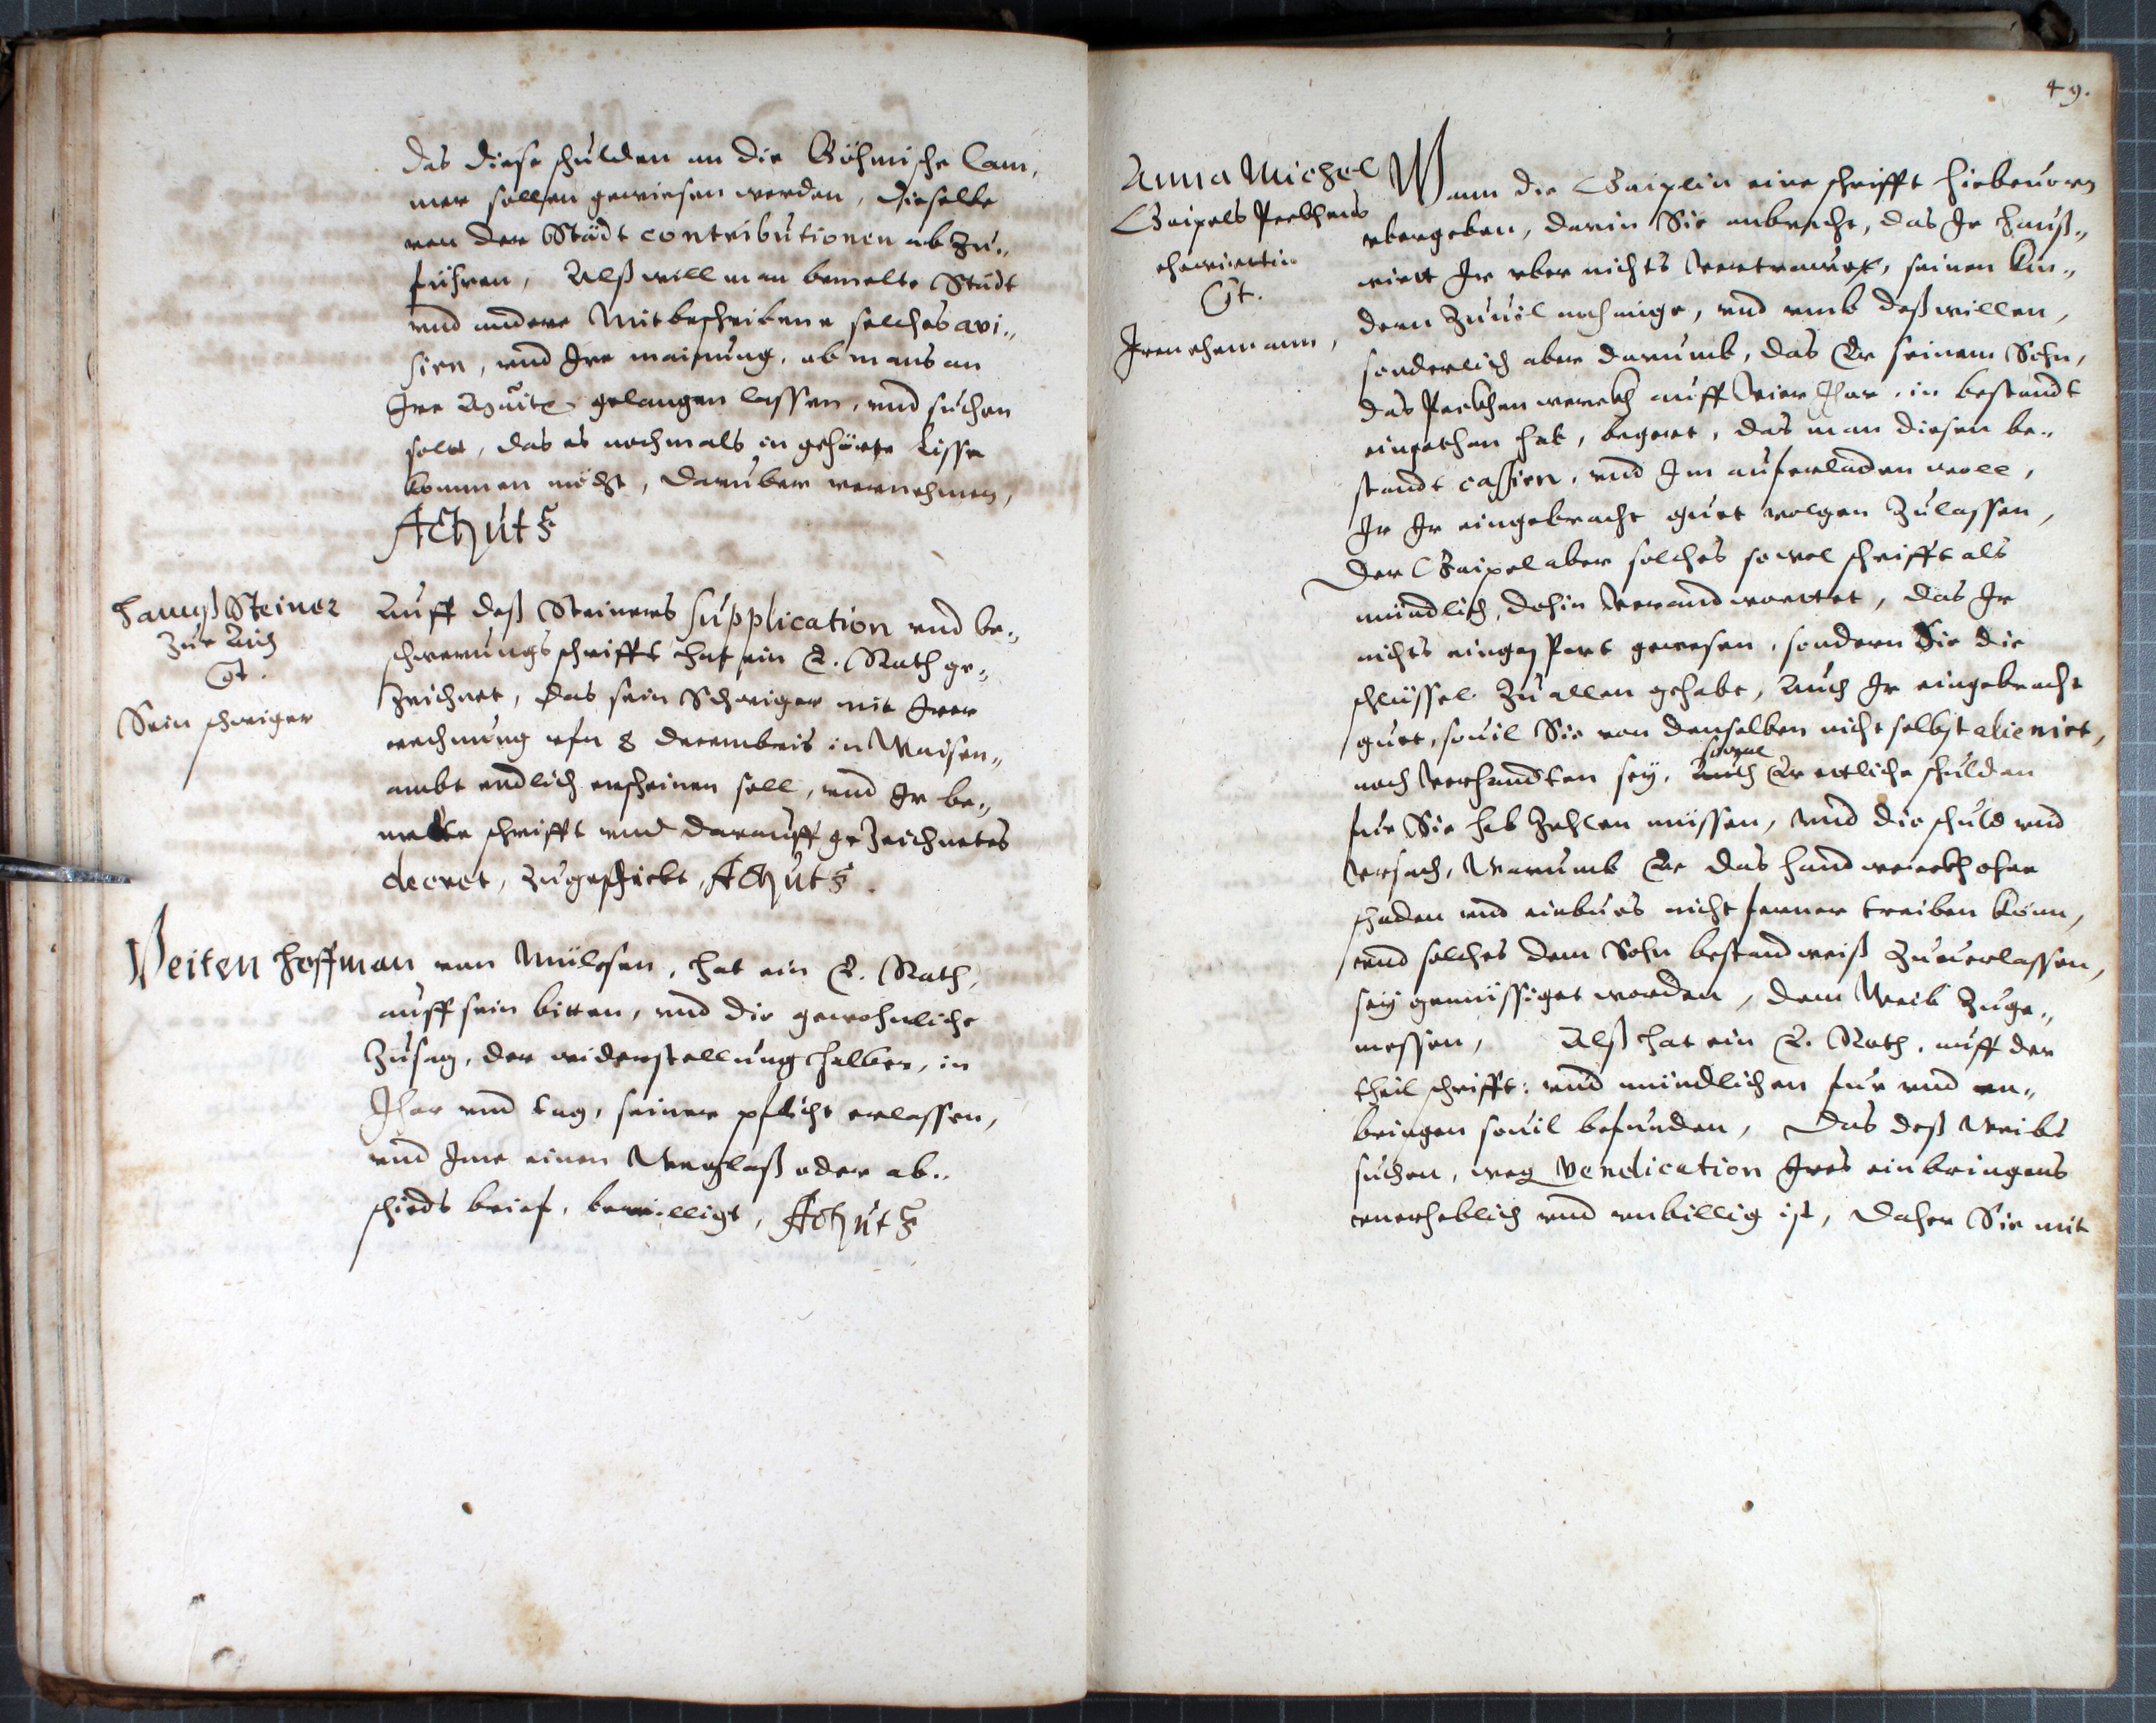 das diese schulden an die Böhmische Cam„
mer sollen gewiesen werden, dieselbe
von der Städt contributionen abzu„
führen, Alß will man bemelte Städt
vnd andere Mitbeschribene solches avi„
sirn, vnd Ire mainung, ob mans an
Ire gelangen lassen, vnd suchen
solt, das es nochmals in gehörte
kommen möcht, darüber vernehmen,
Act[um] ut s[upra]
Hannß Steiner
Zur Aich
Ct.
Sein schwiger
Auff deß Steiners supplication vnd be„
schwerungs schrifft hat ein E. Rath ge„
zeichnet, das sein Schwiger mit Irer
rechnung vfn 8 decembris in Waisen„
ambt endlich erscheinen soll, vnd Ir be„
melte schrifft vnd darauff gezeichnetes
decret, zugeschickt, Act[um] ut s[upra].
Veiten Hoffman von Mülesen, hat ein E. Rath,
auff sein bitten, vnd die gewohnliche
zusag, der widerstellung halber, in
Jhar vnd tag, seiner pflicht erlassen,
vnd Ime einen Weglaß oder ab„
schieds brief, bewilligt, Act[um] ut s[upra]
49.
Anna Michel
Gaipels Peckhens
ehewirtin
Ct.
Iren ehemann,
Wann die Gaiplin eine schrifft hiebeuorn
vbergeben, darin Sie anbracht, das Ir hauß„
wirtt Ir vber nichts vertrawet, seinen kin„
dern zuuil nachhenge, vnd vmb deßwillen,
sonderlich aber darumb, das Er seinem Sohn,
das Peckhen werckh auff vier Jhar, in bestandt
eingethan hat, begert, das man diesen be„
standt cassirn, vnd Im auferladen woll,
Ir Ir eingebracht guet volgen zulassen,
Der Gaipel aber solches sowol schrifft als
mündlich, dohin verandwortet, das Ir
nichts eingespert gewesen, sondern Sie die
schlüssel zu allen gehabt, Auch Ir eingebracht
guet, souil Sie von denselben nicht selbst alienirt,
noch verhandten sey, Auch Er etliche schulden
für Sie hab zahlen müssen, vnd die schuld vnd
vrsach, Warumb Er das handwerckh ohne
schaden vnd einbues nicht ferner treiben könn,
vnd solches dem Sohn bestandweiß zuuerlassen,
sey gemüssiget worden, dem Weib zuge„
messen, Alß hat ein E. Rath, auff der
theil schrifft: vnd mündlichen für vnd an„
bringen souil befunden, Das deß Weibs
suchen, weg[en] vendication Ires einbringens
vnerheblich vnd vnbillig ist, daher Sie mit